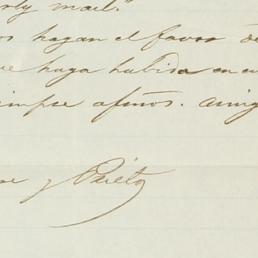 rly mail."
os hagan el favor de
ue haya habido en e
iempre afmos. amig
se y Prieto